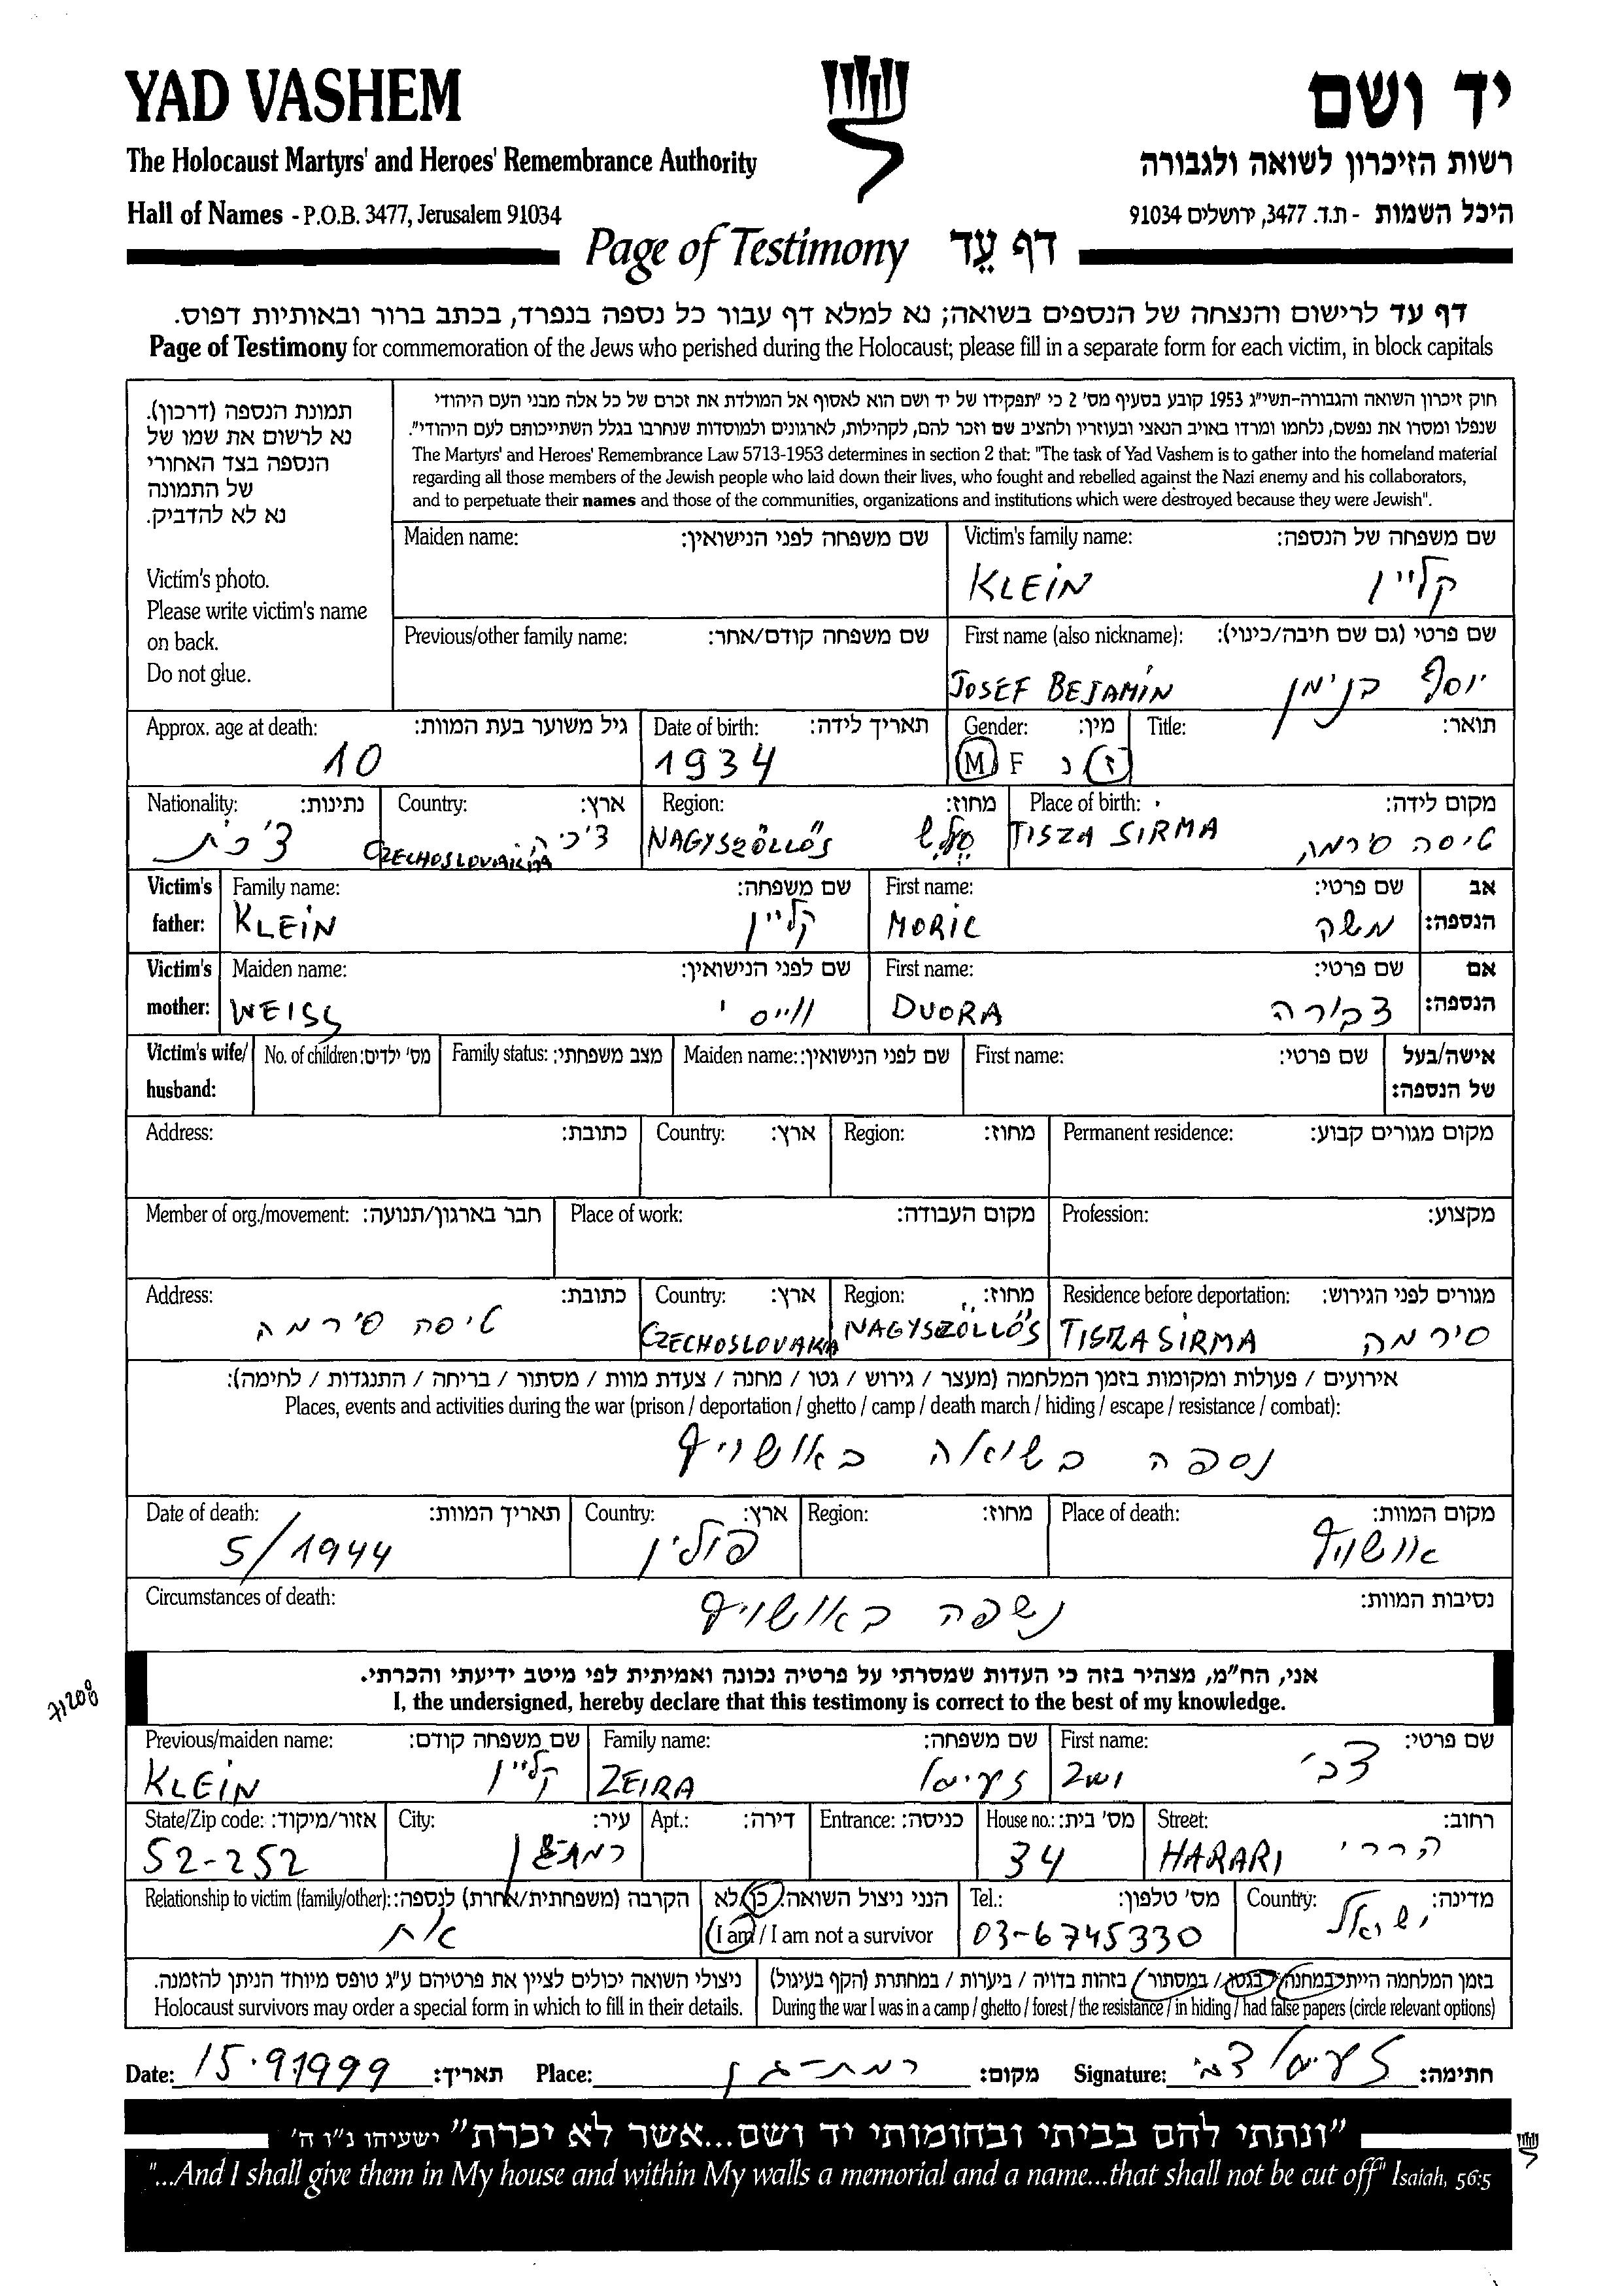 YAD VASHEM
יד ושם
The Holocaust Martyrs' and Heroes' Remembrance Authority
רשות הזיכרון לשואה ולגבורה
Hall of Names - P.O.B. 3477, Jerusalem 91034
היכל השמות - ת.ד. 3477, ירושלים 91034
Page of Testimony דף עֵד
דף עד לרישום והנצחה של הנספים בשואה; נא למלא דף עבור כל נספה בנפרד, בכתב ברור ובאותיות דפוס.
Page of Testimony for commemoration of the Jews who perished during the Holocaust; please fill in a separate form for each victim, in block capitals
תמונת הנספה (דרכון).
נא לרשום את שמו של
הנספה בצד האחורי
של התמונה
נא לא להדביק.
Victim's photo.
Please write victim's name
on back.
Do not glue.
חוק זיכרון השואה והגבורה-תשי"ג 1953 קובע בסעיף מס' 2 כי "תפקידו של יד ושם הוא לאסוף אל המולדת את זכרם של כל אלה מבני העם היהודי
שנפלו ומסרו את נפשם, נלחמו ומרדו באויב הנאצי ובעוזריו ולהציב שם וזכר להם, לקהילות, לארגונים ולמוסדות שנחרבו בגלל השתייכותם לעם היהודי".
The Martyrs' and Heroes' Remembrance Law 5713-1953 determines in section 2 that: "The task of Yad Vashem is to gather into the homeland material
regarding all those members of the Jewish people who laid down their lives, who fought and rebelled against the Nazi enemy and his collaborators,
and to perpetuate their names and those of the communities, organizations and institutions which were destroyed because they were Jewish".
Maiden name: שם משפחה לפני הנישואין:
Victim's family name: שם משפחה של הנספה:
KLEIN קליין
Previous/other family name: שם משפחה קודם/אחר:
First name (also nickname): שם פרטי (גם שם חיבה/כינוי):
JOSEF BEJAMIN יוסף בנימן
Approx. age at death: גיל משוער בעת המוות:
10
Date of birth: תאריך לידה:
1934
Gender: מין:
M F ז נ
Title: תואר:
Nationality: נתינות:
צ'כית
Country: ארץ:
CZECHOSLOVAKIA צ'כיה
Region: מחוז:
NAGYSZÖLLŐS
Place of birth: מקום לידה:
TISZA SIRMA טיסה סירמה
Victim's father: Family name: שם משפחה:
KLEIN קליין
First name: שם פרטי: אב הנספה:
MORIC משה
Victim's mother: Maiden name: שם לפני הנישואין:
WEISS ווייס
First name: שם פרטי: אם הנספה:
DVORA דבורה
Victim's wife/husband: No. of children: מס' ילדים: Family status: מצב משפחתי: Maiden name: שם לפני הנישואין: First name: שם פרטי: אישה/בעל של הנספה:
Address: כתובת: Country: ארץ: Region: מחוז: Permanent residence: מקום מגורים קבוע:
Member of org./movement: חבר בארגון/תנועה: Place of work: מקום העבודה: Profession: מקצוע:
Address: כתובת:
טיסה סירמה
Country: ארץ:
CZECHOSLOVAKIA
Region: מחוז:
NAGYSZÖLLŐS
Residence before deportation: מגורים לפני הגירוש:
TISZA SIRMA סירמה
אירועים / פעולות ומקומות בזמן המלחמה (מעצר / גירוש / גטו / מחנה / צעדת מוות / מסתור / בריחה / התנגדות / לחימה):
Places, events and activities during the war (prison / deportation / ghetto / camp / death march / hiding / escape / resistance / combat):
נספה בשואה באושויץ
Date of death: תאריך המוות:
5/1944
Country: ארץ:
פולין
Region: מחוז:
Place of death: מקום המוות:
אושויץ
Circumstances of death: נסיבות המוות:
נשפה באושויץ
אני, הח"מ, מצהיר בזה כי העדות שמסרתי על פרטיה נכונה ואמיתית לפי מיטב ידיעתי והכרתי.
I, the undersigned, hereby declare that this testimony is correct to the best of my knowledge.
71208
Previous/maiden name: שם משפחה קודם:
KLEIN קליין
Family name: שם משפחה:
ZEIRA זעירא
First name: שם פרטי:
צבי
State/Zip code: אזור/מיקוד:
52-252
City: עיר:
Apt.: דירה: Entrance: כניסה:
House no.: מס' בית:
34
Street: רחוב:
HARARI הררי
Relationship to victim (family/other): הקרבה (משפחתית/אחרת) לנספה:
אח
הנני ניצול השואה: כן/לא
I am / I am not a survivor
Tel.: מס' טלפון:
03-6745330
Country: מדינה:
ישראל
ניצולי השואה יכולים לציין את פרטיהם ע"ג טופס מיוחד הניתן להזמנה.
Holocaust survivors may order a special form in which to fill in their details.
בזמן המלחמה הייתי במחנה / בגטו / במסתור / בזהות בדויה / ביערות / במחתרת (הקף בעיגול)
During the war I was in a camp / ghetto / forest / the resistance / in hiding / had false papers (circle relevant options)
Date: 15.9.1999 תאריך: Place: רמת-גן מקום: Signature: זעירא צבי חתימה:
"ונתתי להם בביתי ובחומותי יד ושם...אשר לא יכרת" ישעיהו נ"ו ה'
"...And I shall give them in My house and within My walls a memorial and a name...that shall not be cut off" Isaiah, 56:5